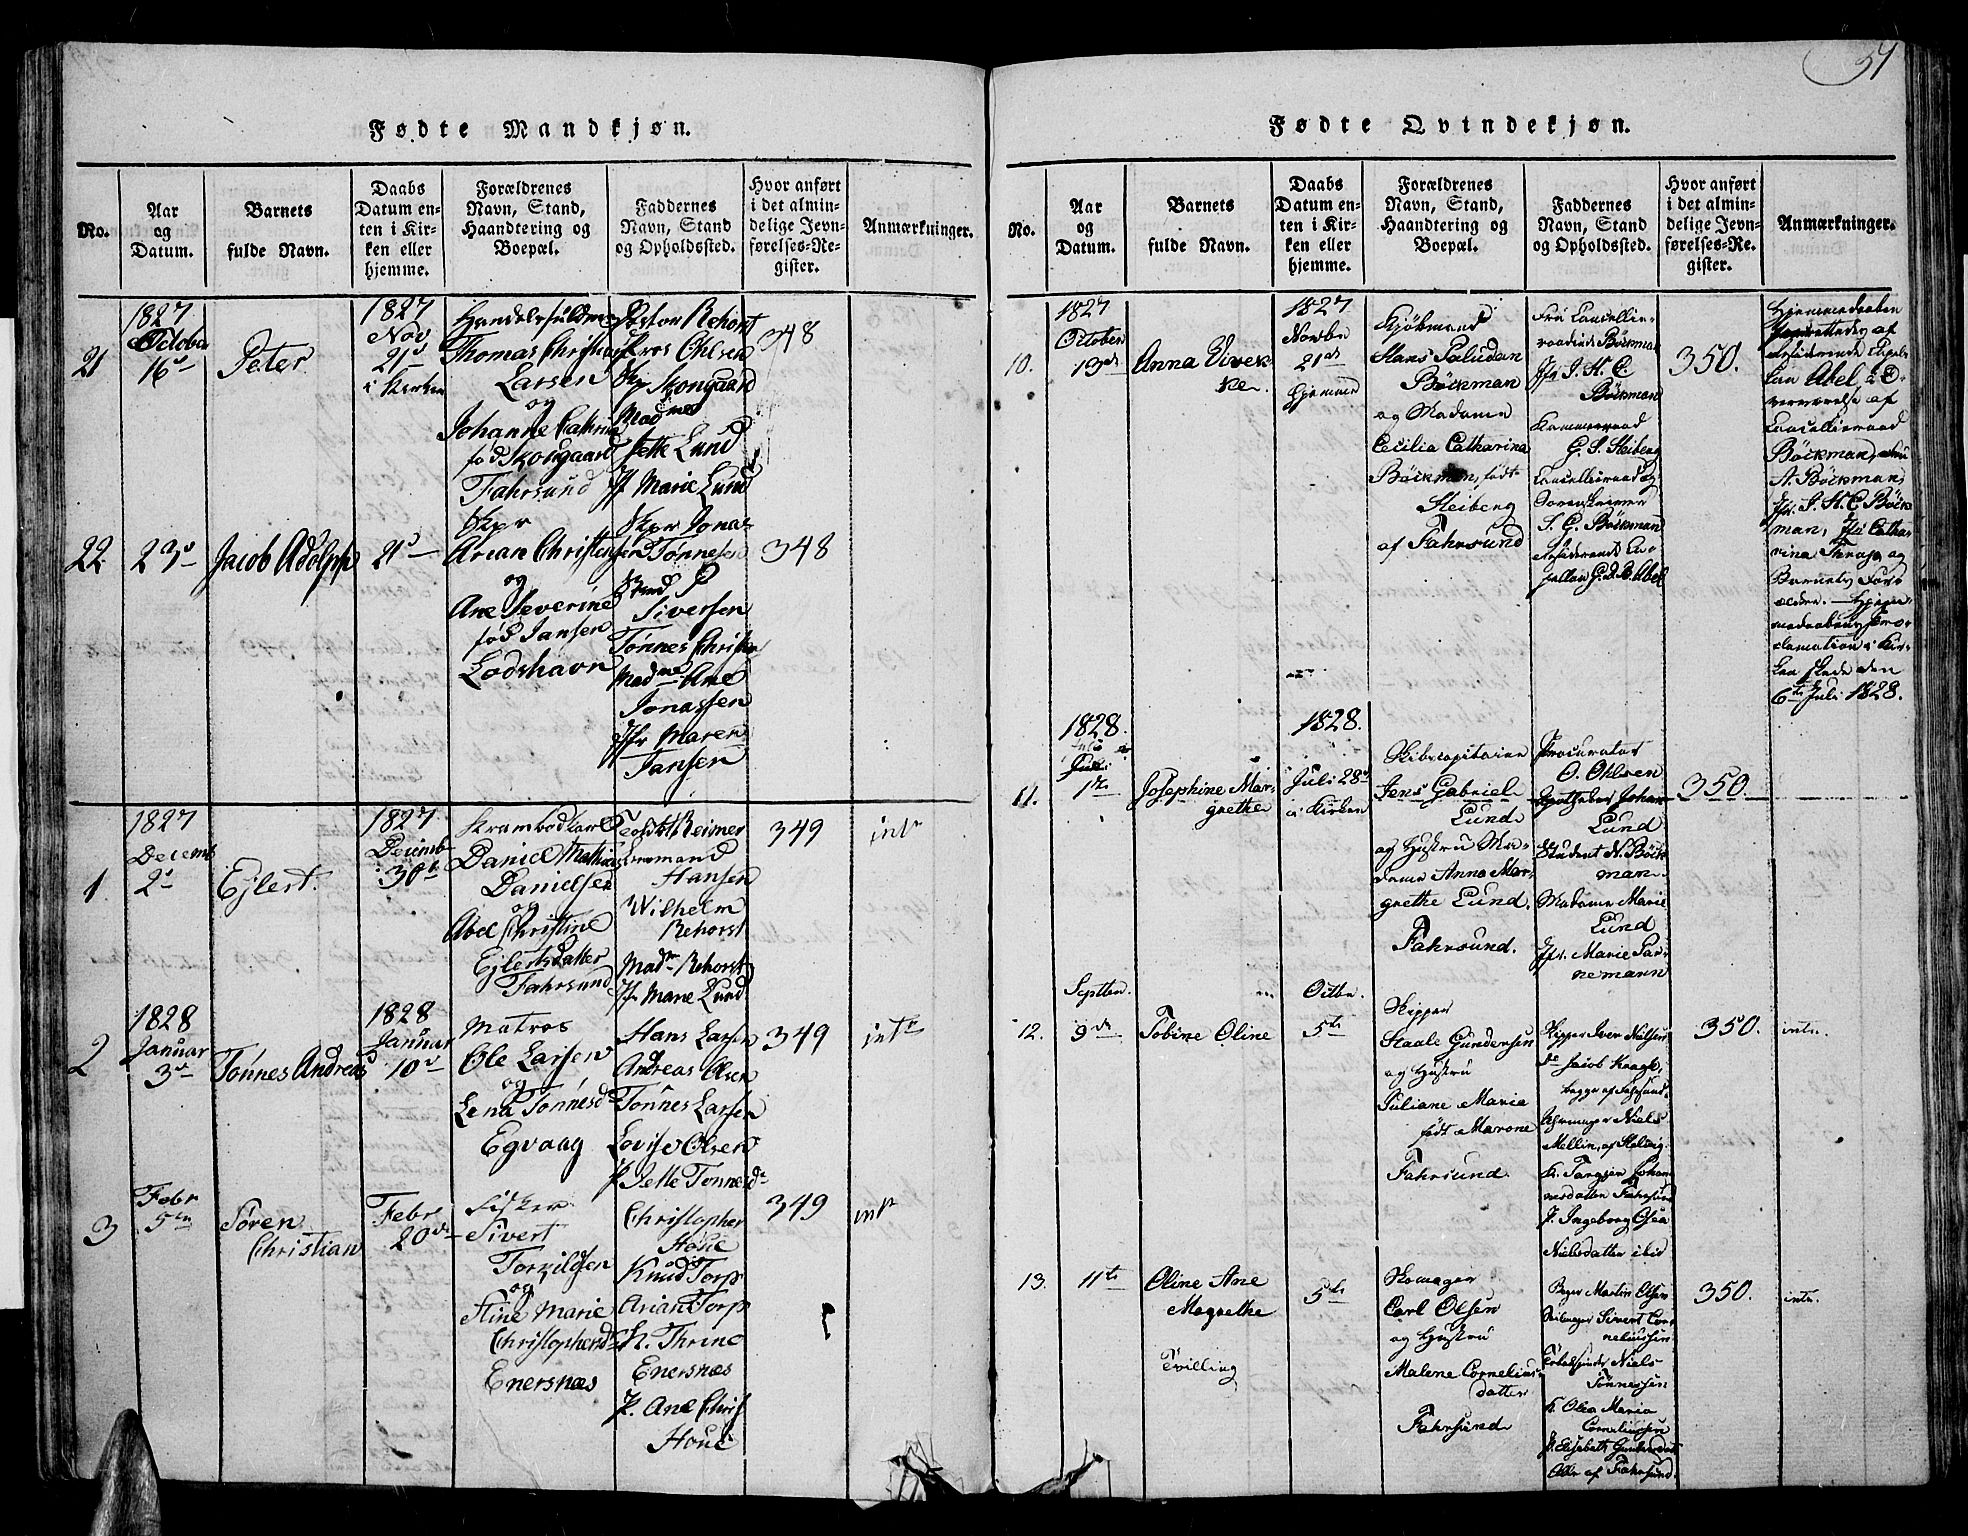 Fødte Mandkjøn.
No.
Aar
og
Datum.
Barnets
fulde Navn.
Daabs
Datum en-
ten i Kir-
ken eller
hjemme.
Forældrenes
Navn, Stand,
Haandtering og
Boepæl.
Faddernes
Navn, Stand
og Opholdssted.
Hvor anført
i det almin-
delige Jevn-
førelses-Re-
gister.
Anmærkninger.
21
1827
October
16de
Peter
1827
Nov
21de
i Kirken
Thomas Christian
Larsen
og
Johanne Cathrine
fød Skovgaard
Fahrsund
Pastor Rehorst
Ohlsen
Skovgaard
Madme
Jette Lund
Jf Marie Lund
348
22.
23de
Jacob Adolph
21de
Skpr
Arian Christensen
og
Ane Severine
fød Jansen
Lodshavn
Skpr Jonas
Tønnesen
P
Siversen
Tønnes Christen
Madme Ane
Jonassen
Jfr Maren
Jansen
348
1.
1827
Decemb
2de
Ejlert.
1827
Decemb
30te
Daniel Mathias
Danielsen
og
Abel Christine
Ejlertsdatter
Fahrsund
Reimer
Hansen
Wilhelm
Rehorst
Madm Rehorst
Jfr Marie Lund
349
intr
2
1828
Januar
3de
Tønnes Andreas
1828
Januar
10de
Matros
Ole Larsen
og
Lena Tønnesd
Egvaag
Hans Larsen
Andreas Olsen
Tønnes Larsen
Lovise Olsen
P. Jette Tønnesd
349
intr
3
Febr
5te
Søren
Christian
Febr
20de
Fisker
Sivert
Torkildsen
og
Stine Marie
Christophersd
Enersnæs
Christopher
Houe
Knud Torp
Arian Torp
K. Thrine
Enersnæs
P. Ane Chris
Houe
349
intr
51
Fødte Qvindekjøn.
No.
Aar
og
Datum.
Barnets
fulde Navn.
Daabs
Datum en-
ten i Kir-
ken eller
hjemme.
Forældrenes
Navn, Stand,
Haandtering og
Boepæl.
Faddernes
Navn, Stand
og Opholdssted.
Hvor anført
i det almin-
delige Jevn-
førelses-Re-
gister.
Anmærkninger.
10.
1827
October
13de
Anna Vivek-
ke.
1827
Novbr
21de
hjemme
Kjøbmand
Hans Paludan
Böckman
og Madame
Cecilia Catharina
Böckman, født
Heiberg
af Fahrsund
Fru Cancellie-
raadinde Böckman
Jfr J. H. C.
Böckman
Kammerraad
G. S. Heiberg
Cancelliraad og
Sorenskriver
S. G. Böckman
residerende Ca-
pellan Abel
350.
Hjemmedaaben
forrettedes af
residerende Capel-
lan Abel, i O-
verværelse af
Cancellieraad
Böckman, Fru
A. Böckman,
Jfr. J. H. C. Böck-
man, Jfr Catha-
rina Thrap og
Barnets For-
ældre. Hjemme-
medaabens Pro-
clamation i Kir-
ken skede den
6te Juli 1828.
11.
1828.
Juli
1te
Josephine Mar-
grethe
1828.
Juli 28de
i Kirken
Skibscapitaine
Jens Gabriel
Lund
og Hustru Ma-
dame Anna Mar-
grethe Lund.
Fahrsund.
Procurator
O. Ohlsen
Apotheker Johan
Lund
Student N. Böck-
man.
Madame Marie
Lund
Jfr. Marie Par-
nemann
350.
12.
Septbr.
9de
Tobine Oline
Octbr.
5te
Skipper
Staale Gundersen
og Hustru
Juliane Maria
født Marone
Fahrsund.
Skipper Iver Nielsen
do Jacob Kragh,
begge af Fahrsund
Uhrmager Niels
Mellin, af
K. Johan-
nesdatter Fahrsund
P. Ingeborg Osea
Nielsdatter ibid
350.
intr.
13.
11te
Oline Ane
Magrethe
Tvilling
5te
Skomager
Carl Olsen
og Hustru
Malene Cornelius-
datter
Fahrsund
Martin Olsen
Seilmager Sivert Cor-
neliussen
Tobakspinder Niels
Tønnessen
K. Olea Maria
Corneliussen
P. Elisabeth Gundersdat
Alle af Fahrsund.
350.
intr.